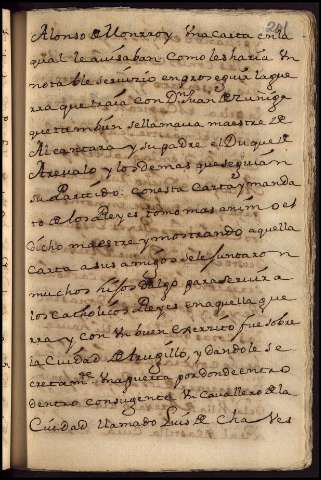 291
Alonso de Monrroy una carta en la
qual le auisaban como les haria un
notable seruicio en proseguir la gue
rra que traia con Dn Juan de Zuñiga
que tambien se llamaua maestre de
Alcantara y su padre el Duque de
Arevalo y los demas que seguian
su Partido: con esta Carta y manda
to de los Reyes tomo mas animo el
dicho maestre y mostrando aquella
Carta a sus amigos se le juntaron
muchos hijos dalgo para seruir a
los Catholicos Reyes en aquella gue
rra y con un buen exercito fue sobre
la Ciudad de trugillo, y dandole se
cretamte una puerta por donde entro
dentro con su gente un cavallero de la
Ciudad llamado Luis de Chaves